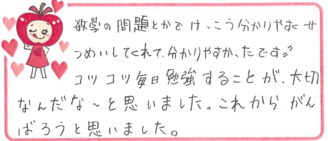 数学の問題とかでけっこう分かりやすくせ
つめいしてくれて、分かりやすかったです。
コツコツ毎日勉強することが、大切
なんだな〜と思いました。これからがん
ばろうと思いました。